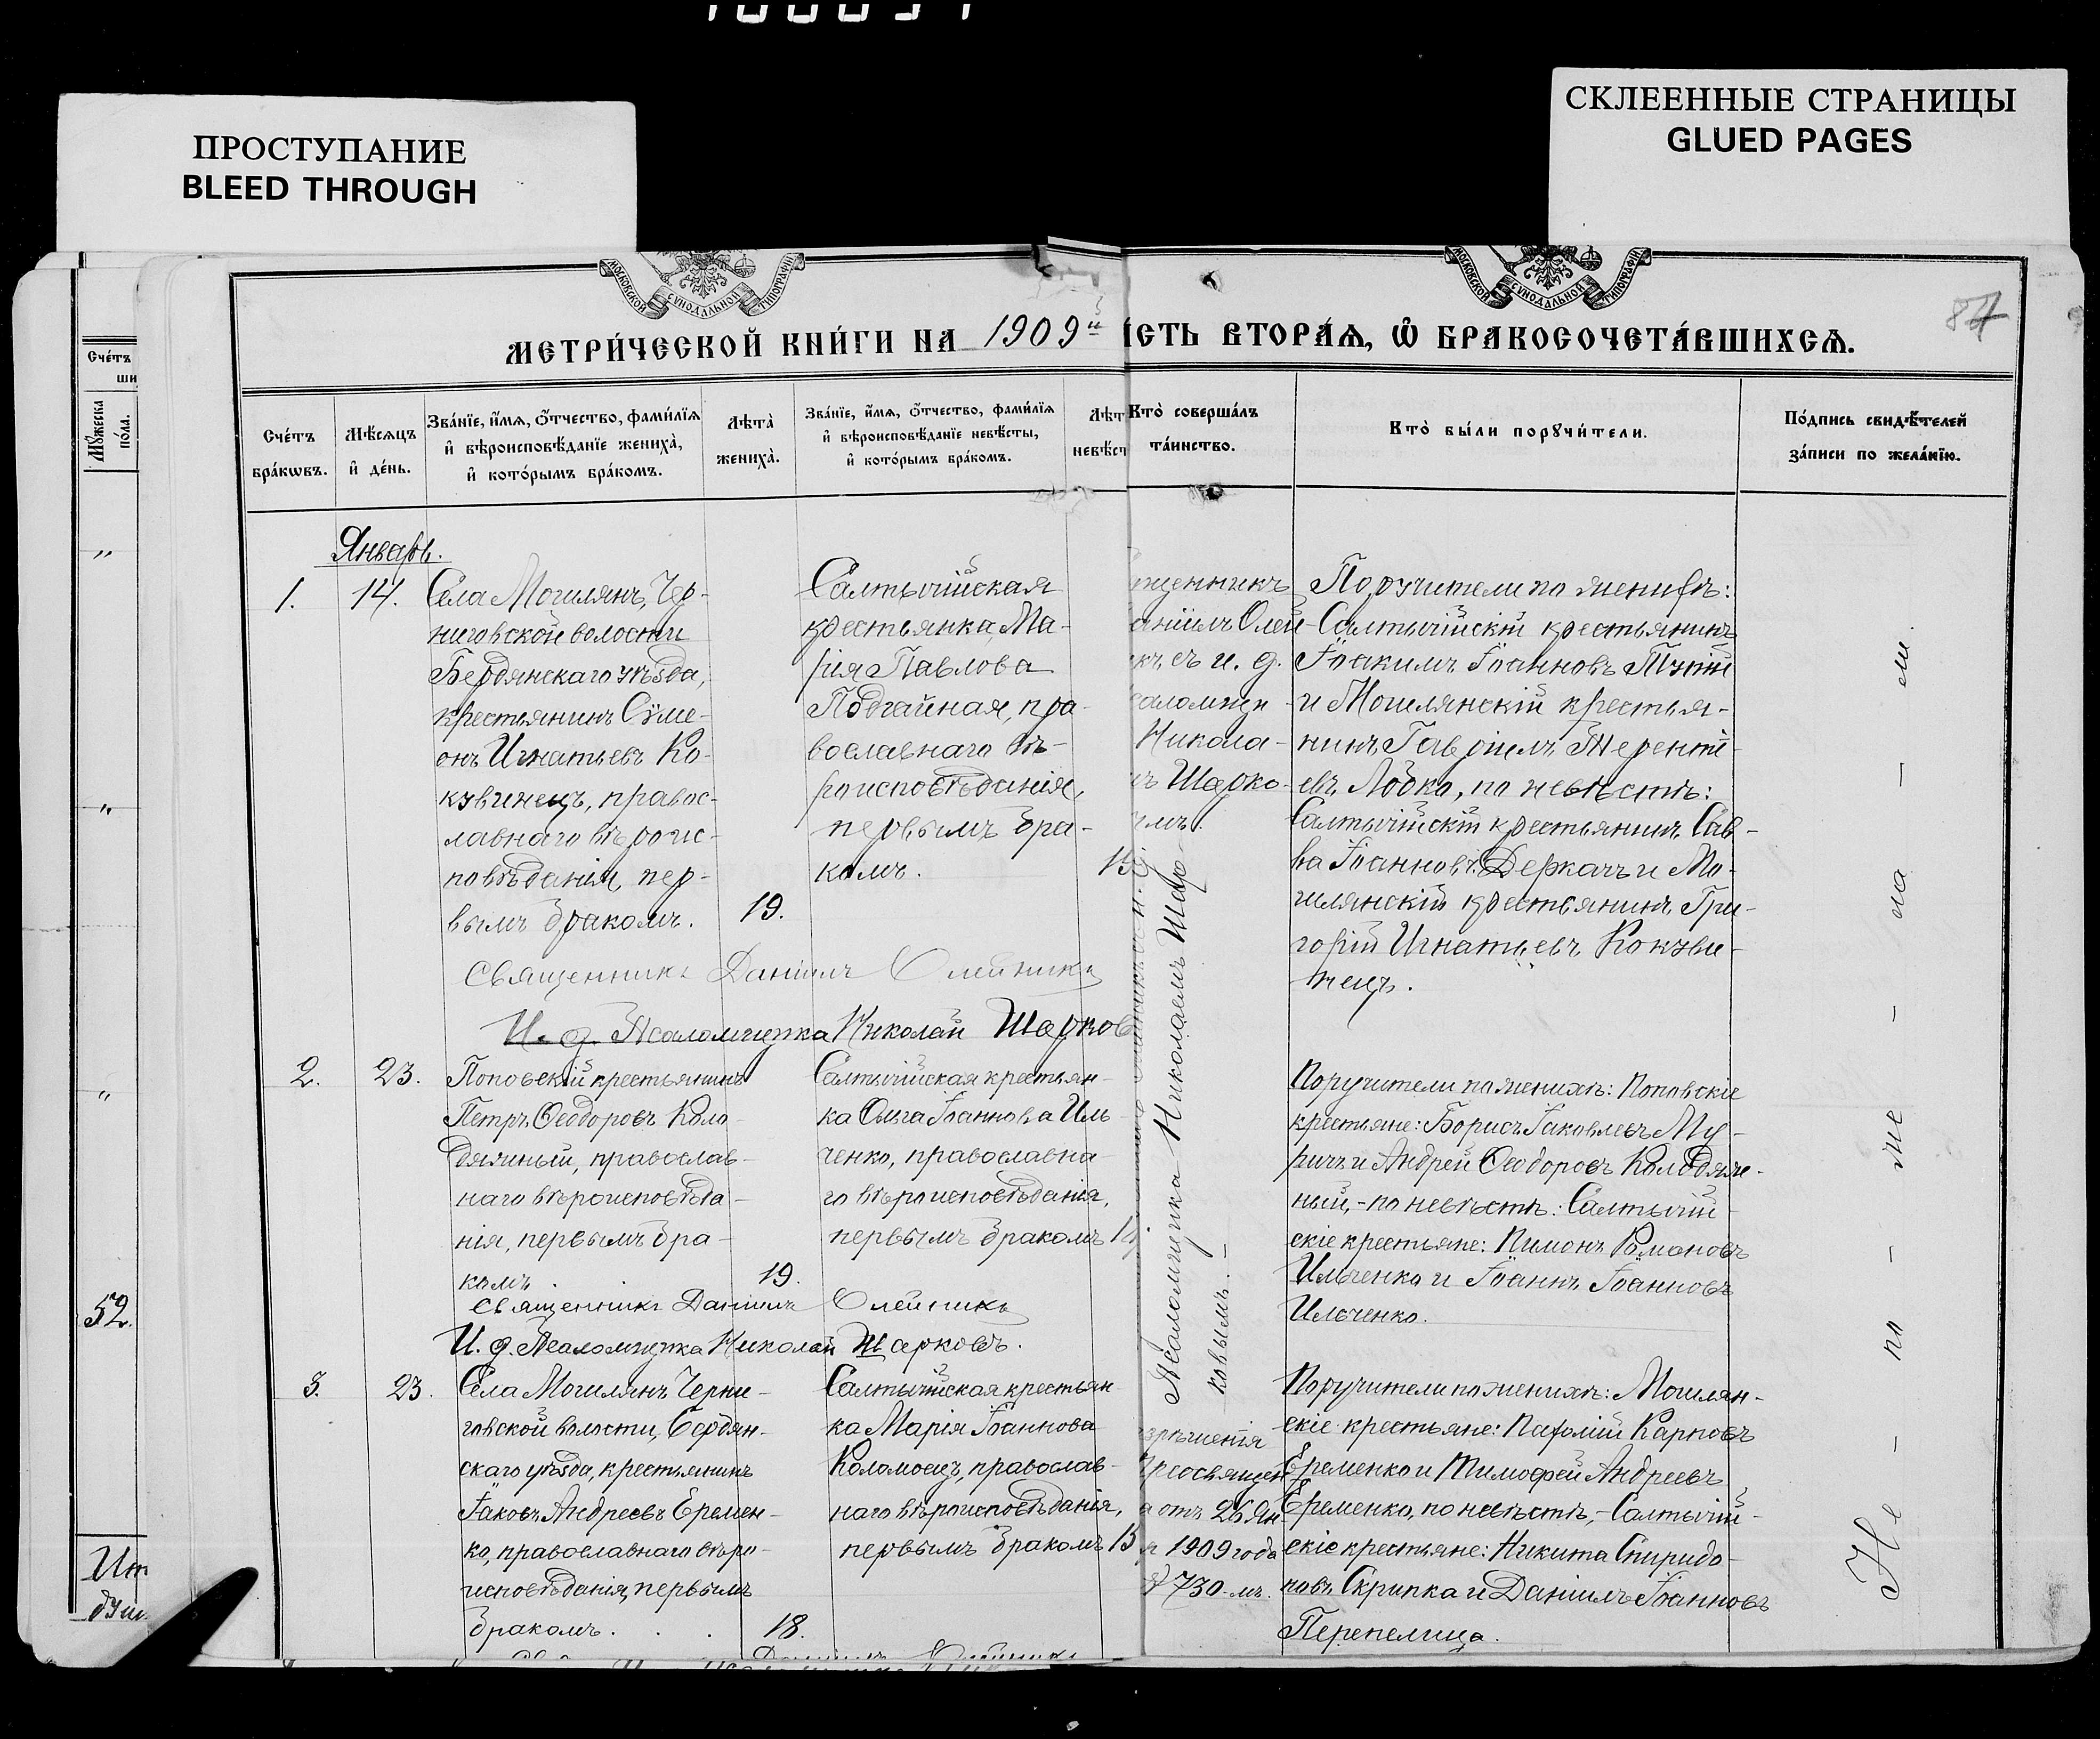 ПРОСТУПАНИЕ
BLEED THROUGH
СКЛЕЕННЫЕ СТРАНИЦЫ
GLUED PAGES
МОСКОВСКОЙ СѴНОДАЛЬНОЙ ТИПОГРАФІИ
МОСКОВСКОЙ СѴНОДАЛЬНОЙ ТИПОГРАФІИ
МЕТРИ́ЧЕСКОЙ КНИ́ГИ НА 1909й
СТЬ ВТОРА́Ѧ, Ѡ҆ БРАКОСОЧЕТА́ВШИХСѦ.
Сче́тъ
бра́кѡвъ.
Мѣ́сѧцъ
и҆ де́нь.
Зва́нїе, и҆́мѧ, ѻ҆́тчество, фами́лїѧ
и҆ вѣроисповѣ́данїе жениха̀,
и҆ кото́рымъ бра́комъ.
Лѣта̀
жениха̀.
Зва́нїе, и҆́мѧ, ѻ҆́тчество, фами́лїѧ
и҆ вѣроисповѣ́данїе невѣ́сты,
и҆ кото́рымъ бра́комъ.
Лѣт
невѣст
Кто̀ соверша́лъ
та́инство.
Кто̀ бы́ли порꙋчи́тели.
По́дпись свидѣ́телей
за́писи по жела́нїю.
Январь.
1.
14.
Села Могилянъ, Чер-
ниговской волости
Бердянскаго уѣзда,
крестьянинъ Сѵме-
онъ Игнатьевъ Ко-
кувинецъ, правос-
лавнаго вѣроис-
повѣданія, пер-
вымъ бракомъ.
19.
Салтычійская
крестьянка, Ма-
рія Павлова
Подгайная, пра-
вославнаго вѣ-
роисповѣданія,
первымъ бра-
комъ.
щенникъ
аніилъ Олей-
къ съ и. д.
саломщи-
Никола-
мъ Шарко-
ымъ.
Поручители по женихѣ:
Салтычійскій крестьянинъ
Іоакимъ Іоанновъ Тупій
и Могилянскій крестья-
нинъ Гавріилъ Теренті-
евъ Лобко, по невѣстѣ:
Салтычійскій крестьянинъ Сав-
ва Іоанновъ Деркачъ и Мо-
гилянскій крестьянинъ Гри-
горій Игнатьевъ Кокуви-
нецъ.
Священникъ Даніилъ Олейникъ
И. д. Псаломщика Николай Шарков
2.
23.
Поповскій крестьянинъ
Петръ Ѳеодоровъ Коло-
дяжный, православ-
наго вѣроисповѣда-
нія, первымъ бра-
комъ.
19.
Салтычійская крестьян-
ка Ольга Іоаннова Иль-
ченко, православна-
го вѣроисповѣданія,
первымъ бракомъ
Псаломщика Николаемъ Шар-
ковымъ. –
Поручители по женихѣ: Поповскіе
крестьяне: Борисъ Іаковлевъ Му-
ричъ и Андрей Ѳеодоровъ Колодяж-
ный, - по невѣстѣ: Салтычій-
скіе крестьяне: Пимонъ Романовъ
Ильченко и Іоаннъ Іоанновъ
Ильченко.
Священникъ Даніилъ Олейникъ
И. д. Псаломщика Николай Шарковъ.
3.
23.
Села Могилянъ Черни-
говской волости, Бердян-
скаго уѣзда, крестьянинъ
Іаковъ Андреевъ Еремен-
ко, православнаго вѣро-
исповѣданія, первымъ
бракомъ.
18.
Салтычійская крестьян
ка Марія Іоаннова
Коломоецъ, православ-
наго вѣроисповѣданія,
первымъ бракомъ
зрѣшенія
Преосвящен
а отъ 26 Ян-
я 1909 года
730-мъ.
Поручители по женихѣ: Могилян-
скіе крестьяне: Пафомій Карповъ
Еременко и Тимофей Андреевъ
Еременко, по невѣстѣ, - Салтычій-
скіе крестьяне: Никита Спиридо-
новъ Скрипка и Даніилъ Іоанновъ
Перепелица.
Не – по – же – ла – ли.
Сче́тъ
ши
Мꙋ́жеска
по́ла.
52.
Ит
душ